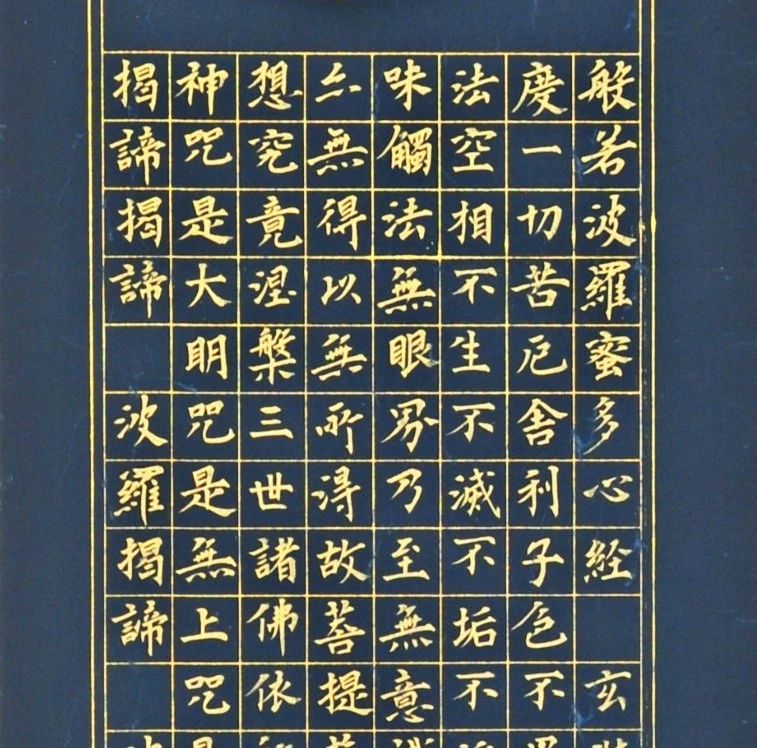 般若波羅蜜多心経 玄
度一切苦厄舍利子色不
法空相不生不滅不垢不
味觸法無眼界乃至無意
亦無得以無所得故菩提
想究竟涅槃三世諸佛依
神咒是大明咒是無上咒
揭諦揭諦 波羅揭諦